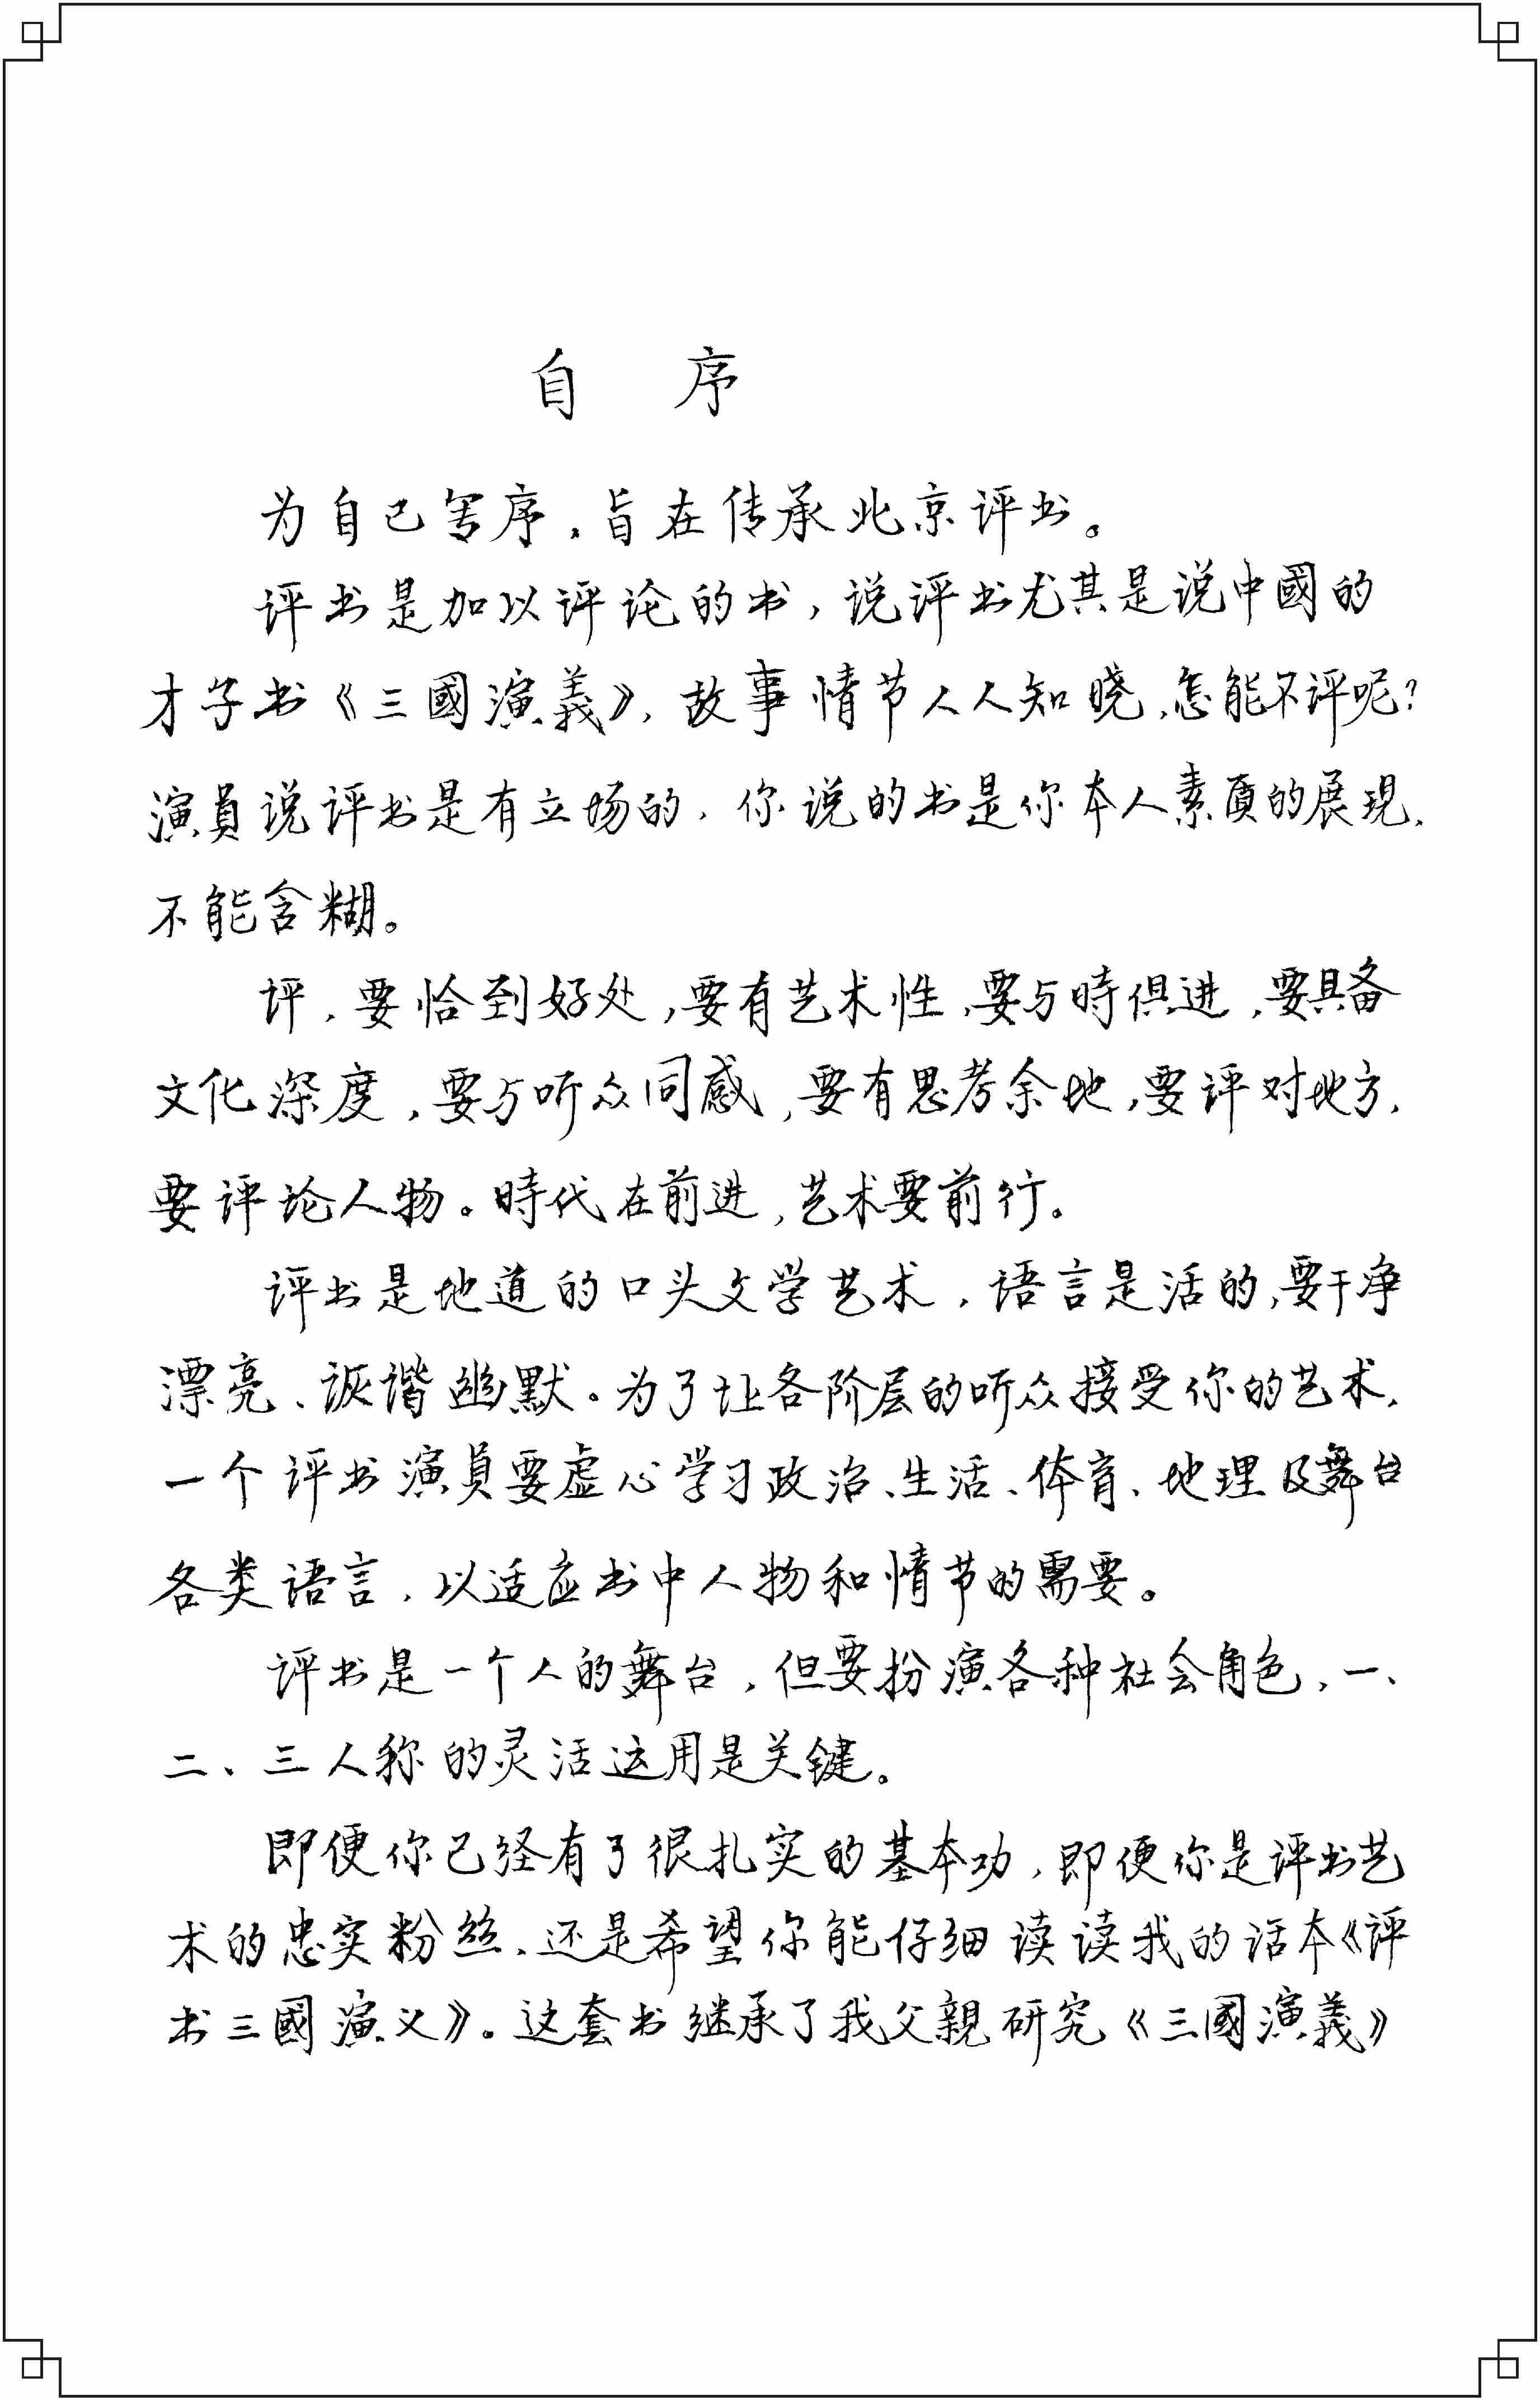 自 序
为自己写序,旨在传承北京评书。
评书是加以评论的书,说评书尤其是说中國的
才子书《三國演義》,故事情节人人知晓,怎能不评呢?
演員说评书是有立场的,你说的书是你本人素质的展现,
不能含糊。
评,要恰到好处,要有艺术性,要与時俱进,要具备
文化深度,要与听众同感,要有思考余地,要评对地方,
要评论人物。時代在前进,艺术要前行。
评书是地道的口头文学艺术,语言是活的,要干净
漂亮、诙谐幽默。为了让各阶层的听众接受你的艺术,
一个评书演員要虚心学习政治、生活、体育、地理及舞台
各类语言,以适应书中人物和情节的需要。
评书是一个人的舞台,但要扮演各种社会角色,一、
二、三人称的灵活运用是关键。
即便你已经有了很扎实的基本功,即便你是评书艺
术的忠实粉丝,还是希望你能仔细读读我的话本《评
书三國演义》。这套书继承了我父親研究《三國演義》